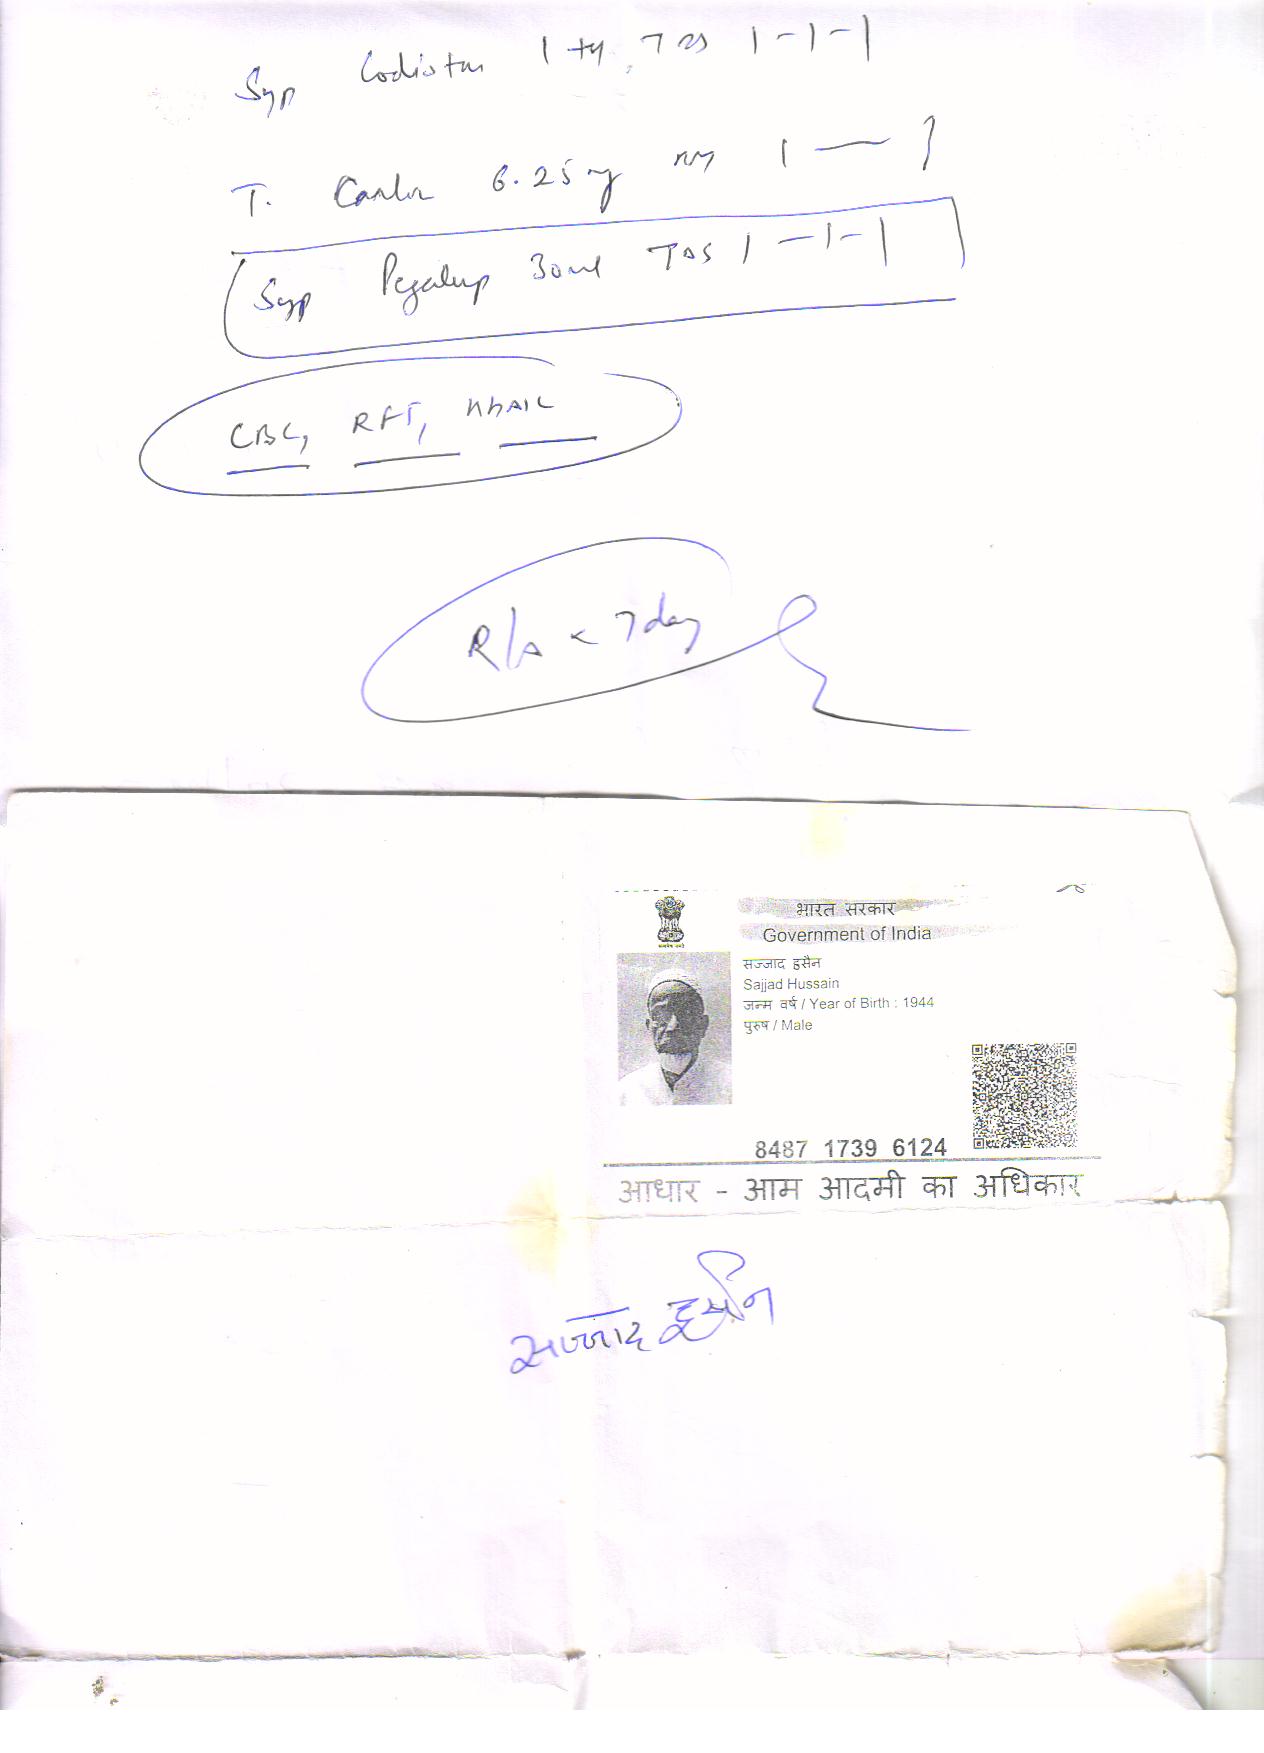 Syp 1 TDS 1-1-1
T. 6.25 mg 1 — 1
Syp 30ml TDS 1-1-1
CBC, RFT,
R/A < 7 day
भारत सरकार
Government of India
सज्जाद हुसैन
Sajjad Hussain
जन्म वर्ष / Year of Birth : 1944
पुरुष / Male
8487 1739 6124
आधार - आम आदमी का अधिकार
सज्जाद हुसैन